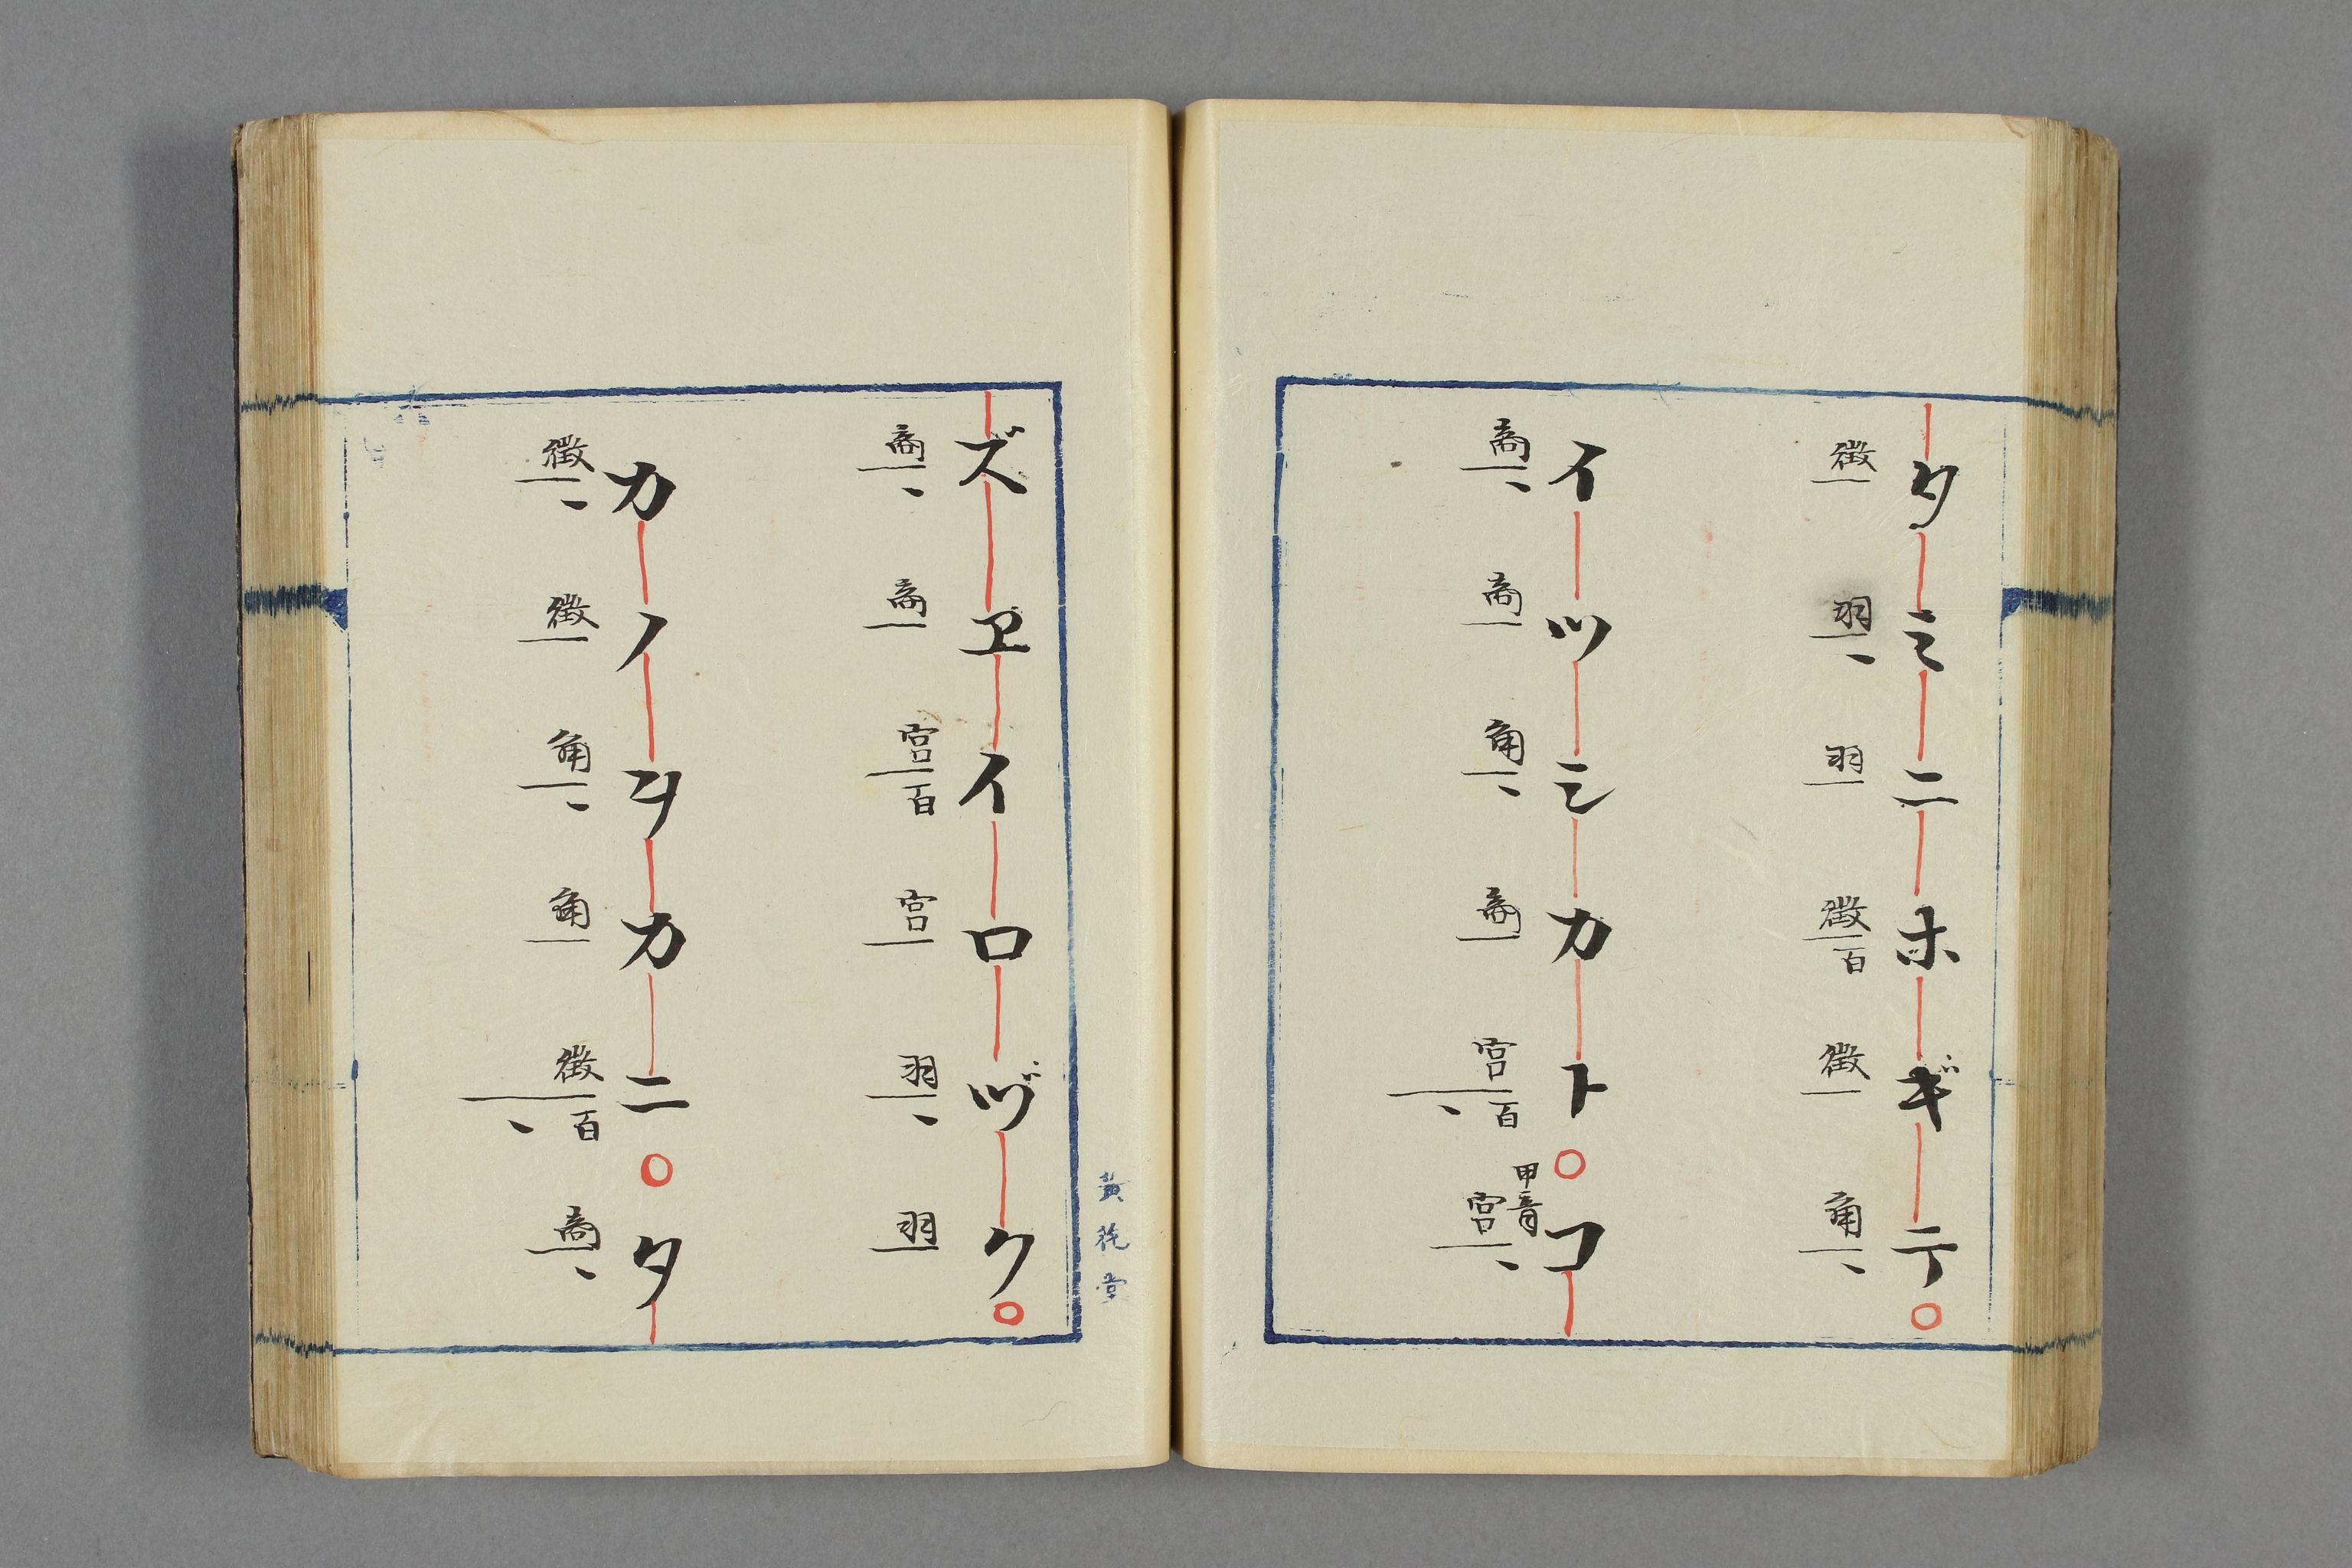 タミニホギテ○
徴羽羽徴百徴角
イツシカト○コ
商商角商宮百甲音宮
ズヱイロヅク○
商商宮百宮羽羽
カノヲカニ○タ
徴徴角角徴百商
黄花堂